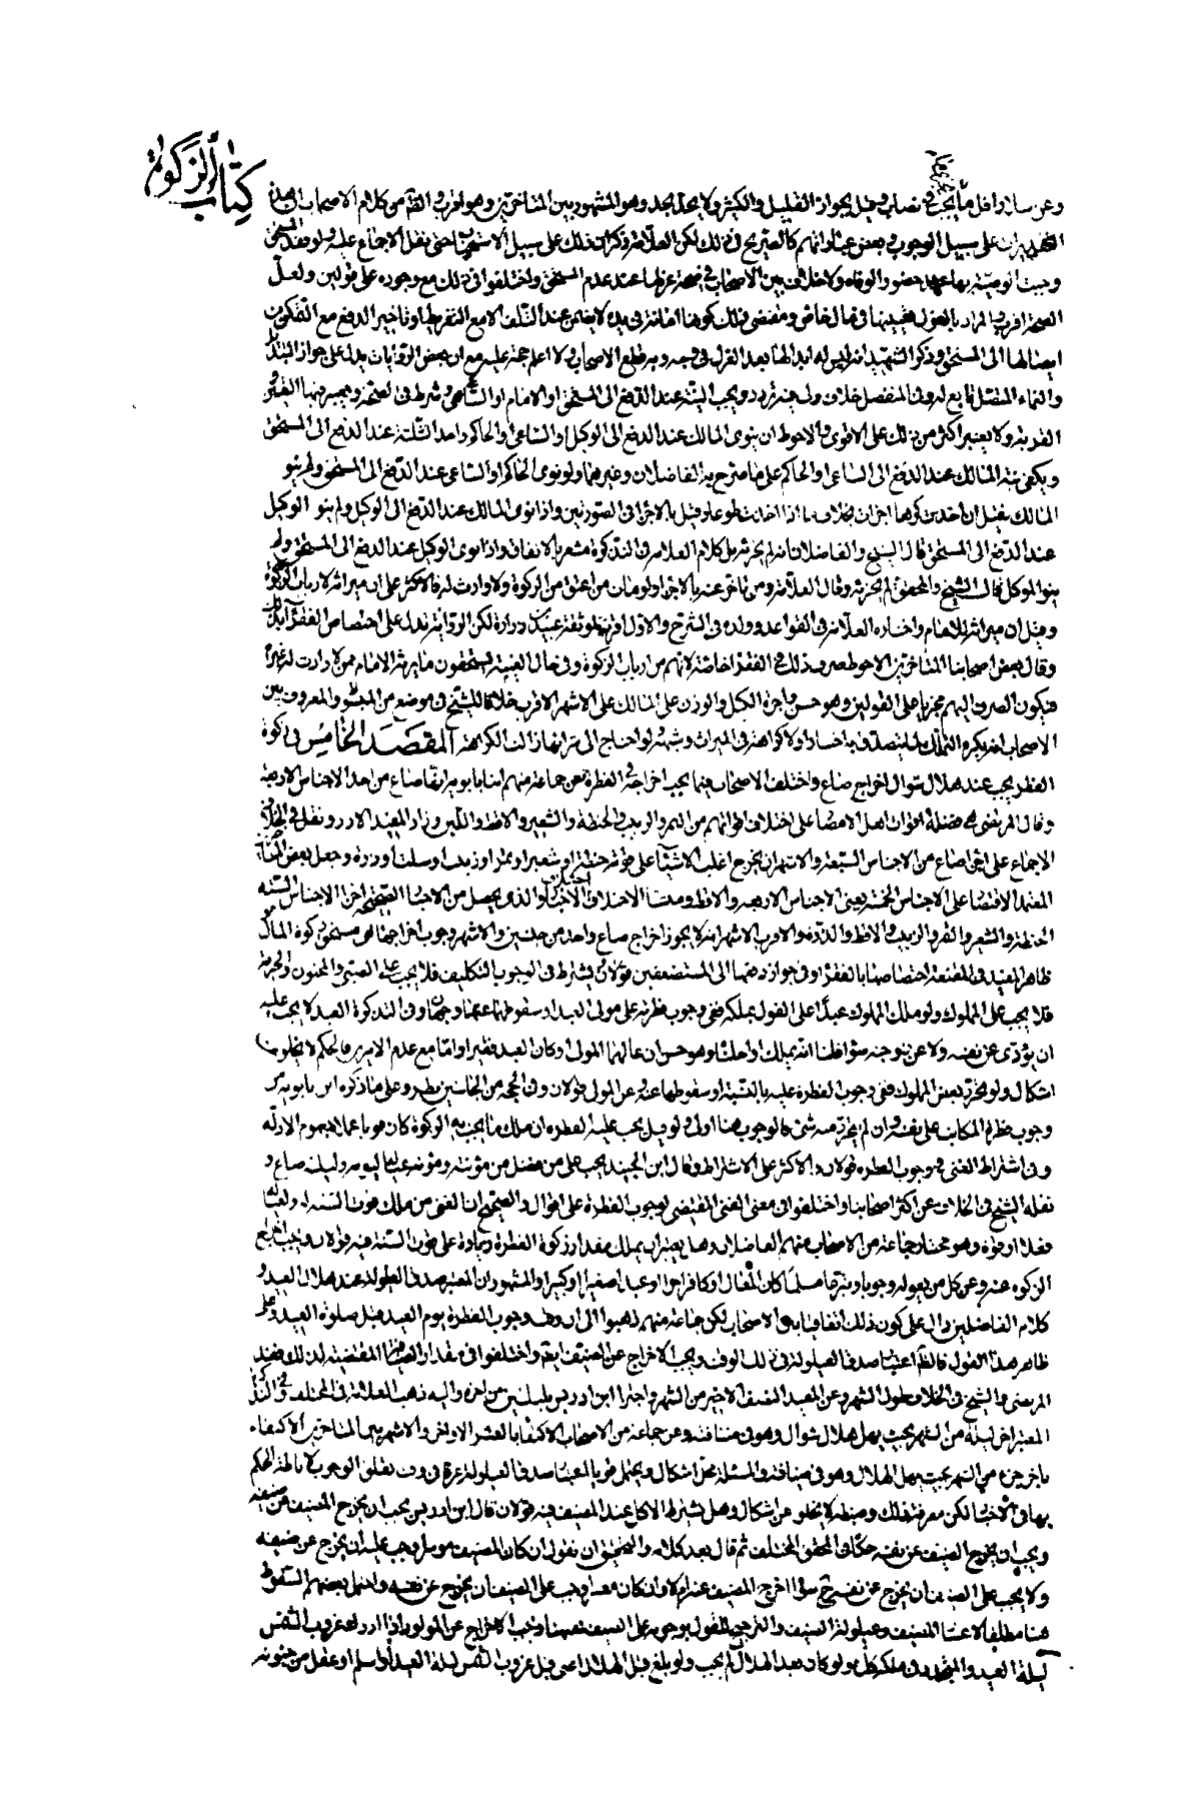 كتاب الزكوة
وعن سلار اقل ما يجب في نصاب وقيل يجوز القليل والكثير ولا يحد بحد وهو المشهور بين المتأخرين وهو اقرب من كلام الاصحاب ان هذه
التقديرات على سبيل الوجوب وبعض عباراتهم كالصريح في ذلك لكن العلامة ذكر ان ذلك على سبيل الاستحباب نقل الاجماع عليه ولو فقد المستحق
وجبت توصيته بها عند حضور الوفاة ولا خلاف بين الاصحاب في صحة عزلها عند عدم المستحق واختلفوا في ذلك مع وجوده على قولين ولعل
الصحة اقرب والمراد بالعزل تعيينها في مال خاص ومقتضى ذلك كونها امانة في يده لا يضمن عند التلف الا مع التفريط او تأخير الدفع مع التمكن من
ايصالها الى المستحق وذكر الشهيد انه ليس له ابدالها بعد العزل في وجه وبه قطع الاصحاب ولا اعلم حجة عليه مع ان بعض الروايات يدل على جواز التبديل
والنماء المتصل تابع له وفي المنفصل خلاف ولي فيه تردد ويجب النية عند الدفع الى المستحق او الامام او الساعي وشرط في الصحة ويعتبر فيها القصد
القربة ولا يعتبر اكثر من ذلك على الاقوى والاحوط ان ينوى المالك عند الدفع الى الوكيل او الساعي او الحاكم واحد الثلثة عند الدفع الى المستحق
ويكفي نية المالك عند الدفع الى الساعي او الحاكم على ما صرح به الفاضلان وغيرهما ولو نوى الحاكم او الساعي عند الدفع الى المستحق ولم ينو
المالك قيل ان اخذت كرها اجزات بخلاف ما اذا اخذت طوعا وقيل بالاجزاء في الصورتين واذا نوى المالك عند الدفع الى الوكيل ولم ينو الوكيل
عند الدفع الى المستحق قال الشيخ والفاضلان انه لم يجزئه بل كلام العلامة في التذكرة مشعر بالاتفاق واذا نوى الوكيل عند الدفع الى المستحق ولم
ينو الموكل قال الشيخ والمحقق لم يجزئه وقال العلامة ومن تأخر عنه بالاجزاء ولو مات من اعتق من الزكوة ولا وارث له فالاكثر على ان ميراثه لارباب الزكوة
وقيل ان ميراثه للامام واختاره العلامة في القواعد وولده في الشرح والاول اقرب لموثقة عبيد بن زرارة لكن الرواية تدل على اختصاص الفقراء بذلك
وقال بعض اصحابنا المتأخرين الاحوط صرف ذلك في الفقراء خاصة لانهم من ارباب الزكوة وفي حال الغيبة يستحقون ما يرثه الامام ممن لا وارث له غيره
فيكون الصرف اليهم مجزيا على القولين وهو حسن واجرة الكيل والوزن على المالك على الاشهر الاقرب خلافا للشيخ في موضع من المبسوط والمعروف بين
الاصحاب انه يكره التملك لما يتصدق به اختيارا ولا كراهة في الميراث وشبهه ولو احتاج الى شرائها زالت الكراهة المقصد الخامس في زكوة
الفطر يجب عند هلال شوال اخراج صاع واختلف الاصحاب فيما يجب اخراجه في الفطرة فعن جماعة منهم ابنا بابويه انها صاع من احد الاجناس الاربعة
وقال المرتضى هي فضلة اقوات اهل الامصار على اختلاف اقواتهم من التمر والزبيب والحنطة والشعير والاقط واللبن وزاد المفيد الارز ونقل في الخلاف
الاجماع على اجزاء صاع من الاجناس السبعة والاشهر ان يخرج اغلب الاشياء على قوته حنطة او شعير او تمر او زبيب او سلت او ذرة وجعل بعض المتأخرين
المعتمد الاقتصار على الاجناس الخمسة يعني الاجناس الاربعة والاقط ومنشأ الاختلاف اختلاف الاخبار والذي يحصل من الاخبار الصحيحة اجزاء الاجناس الستة
الحنطة والشعير والتمر والزبيب والاقط والذرة والاقرب الاشهر انه لا يجوز اخراج صاع واحد من جنسين والاشهر وجوب اخراجها في مستحق زكوة المال
ظاهر المفيد في المقنعة اختصاصها بالفقراء وفي جواز دفعها الى المستضعفين قولان يشترط في الوجوب التكليف فلا يجب على الصبي والمجنون والحرية
فلا يجب على المملوك ولو ملك المملوك عبدا على القول بملكه ففي وجوب فطرته على مولى العبد او سقوطها عنهما وجهان وفي التذكرة العبد لا يجب عليه
ان يؤدي عن نفسه ولا عن زوجته سواء قلنا انه يملك او احلنا وهو حسن ان عالهما المولى او كان العبد فقيرا واما مع عدم الامرين فالحكم لا يخلو من
اشكال ولو تحرر بعض المملوك ففي وجوب الفطرة عليه بالنسبة او سقوطها عنه وعن المولى قولان وفي الحجة من الجانبين نظر وعلى ما ذكره ابن بابويه من
وجوب فطرة المكاتب على نفسه وان لم يتحرر منه شيء فالوجوب هنا اولى ولو قيل يجب عليه الفطرة ان ملك ما يجب به الزكوة كان قويا عملا بعموم الادلة
وفي اشتراط الغنى في وجوب الفطرة قولان والاكثر على الاشتراط وقال ابن الجنيد يجب على من فضل من مؤنته ومؤنة عياله ليومه وليلته صاع و
نقله الشيخ في الخلاف عن اكثر اصحابنا واختلفوا في معنى الغنى المقتضي لوجوب الفطرة على اقوال والصحيح ان الغني من ملك قوت السنة له ولعياله
فعلا او قوة وهو مختار جماعة من الاصحاب منهم الفاضلان وهل يعتبر ان يملك مقدار زكوة الفطرة زيادة على قوت السنة فيه قولان ويجب اخراج
الزكوة عنه وعن كل من يعوله وجوبا او تبرعا مسلما كان المعال او كافرا حرا او عبدا صغيرا او كبيرا والمشهور ان المعتبر صدق العيلولة عند هلال العيد و
كلام الفاضلين دال على كون ذلك اتفاقيا بين الاصحاب لكن جماعة منهم ذهبوا الى ان وقت وجوب الفطرة يوم العيد قبل صلوة العيد وعلى
ظاهر هذا القول فالظاهر اعتبار صدق العيلولة في ذلك الوقت ويجب الاخراج عن الضيف ايضا واختلفوا في مقدار الضيافة المقتضية لذلك فعند
المرتضى والشيخ في الخلاف طول الشهر وعن المفيد النصف الاخير من الشهر واجتزا ابن ادريس بليلتين من اخره واليه ذهب العلامة في المختلف وفي التذكرة
المعتبر اخر ليلة من الشهر بحيث يهل هلال شوال وهو في ضيافته وعن جماعة من الاصحاب الاكتفاء بالعشر الاواخر والاشهر بين المتأخرين الاكتفاء
باخر جزء من الشهر بحيث يهل الهلال وهو في ضيافته والمسئلة محل اشكال ويحتمل قويا اعتبار صدق العيلولة عرفا في وقت تعلق الوجوب لاناطة الحكم
بها في الاخبار لكن معرفة ذلك وضبطه لا يخلو عن اشكال وهل يشترط الاكل عند المضيف فيه قولان قال ابن ادريس يجب ان يخرج المضيف عن ضيفه
ويجب ان يخرج الضيف عن نفسه حكاه المحقق المختلف ثم قال بعد كلام والتحقيق ان نقول ان كان المضيف موسرا وجب عليه ان يخرج عن ضيفه
ولا يجب على الضيف ان يخرج عن نفسه سواء اخرج المضيف عنه او لا وان كان معسرا وجب على الضيف ان يخرج عن نفسه واحتمل بعضهم السقوط
هنا مطلقا لاعسار المضيف وعيلولة الضيف والترجيح للقول بوجوبه على الضيف هنا ويجب الاخراج عن المولود اذا ادرك غروب الشمس
ليلة العيد والمتجدد في ملكه كك ولو كان بعد الهلال لم يجب ولو بلغ قبل الهلال اعني قبل غروب الشمس ليلة العيد او اسلم او عقل من جنونه